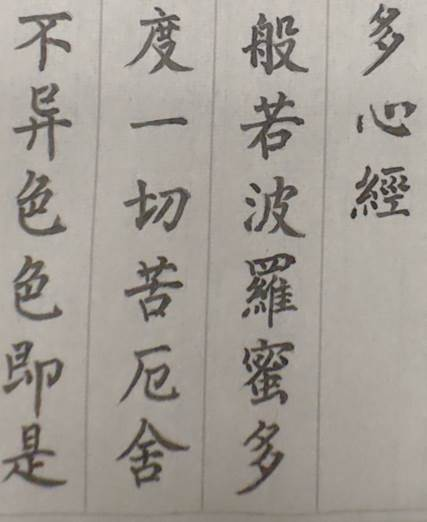 多心經
般若波羅蜜多
度一切苦厄舍
不异色色即是